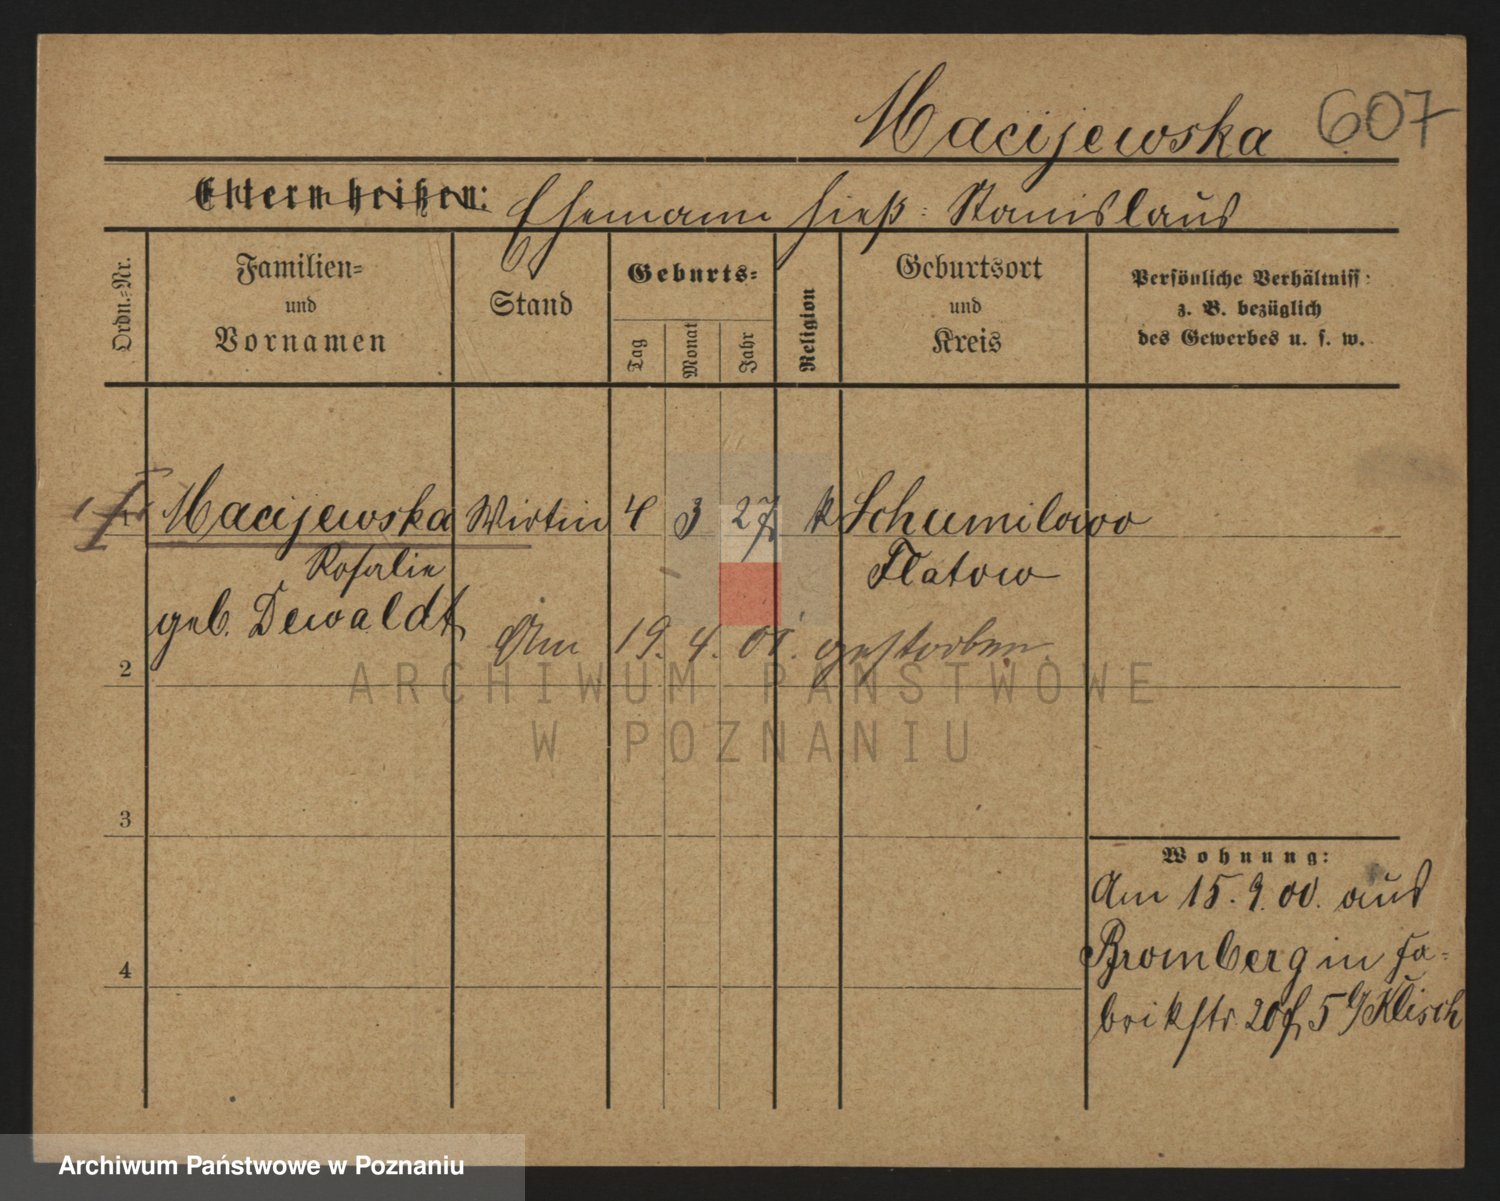 Macijewska 607
Eltern heißen: Ehemann hieß: Stanislaus
Ordn.-Nr.
Familien-
und
Vornamen
Stand
Geburts-
Tag
Monat
Jahr
Religion
Geburtsort
und
Kreis
Persönliche Verhältniss
z. B. bezüglich
des Gewerbes u. s. w.
1 Macijewska Wirtin 4 3 27 k Schumilowo
Rosalie Flatow
geb. Dewaldt
Am 19. 4. 01. gestorben.
2
3
4
Wohnung:
Am 15. 9. 00. aus
Bromberg in Fa-
brikstr 20 f, 5 b/Klisch
ARCHIWUM PAŃSTWOWE
W POZNANIU
Archiwum Państwowe w Poznaniu